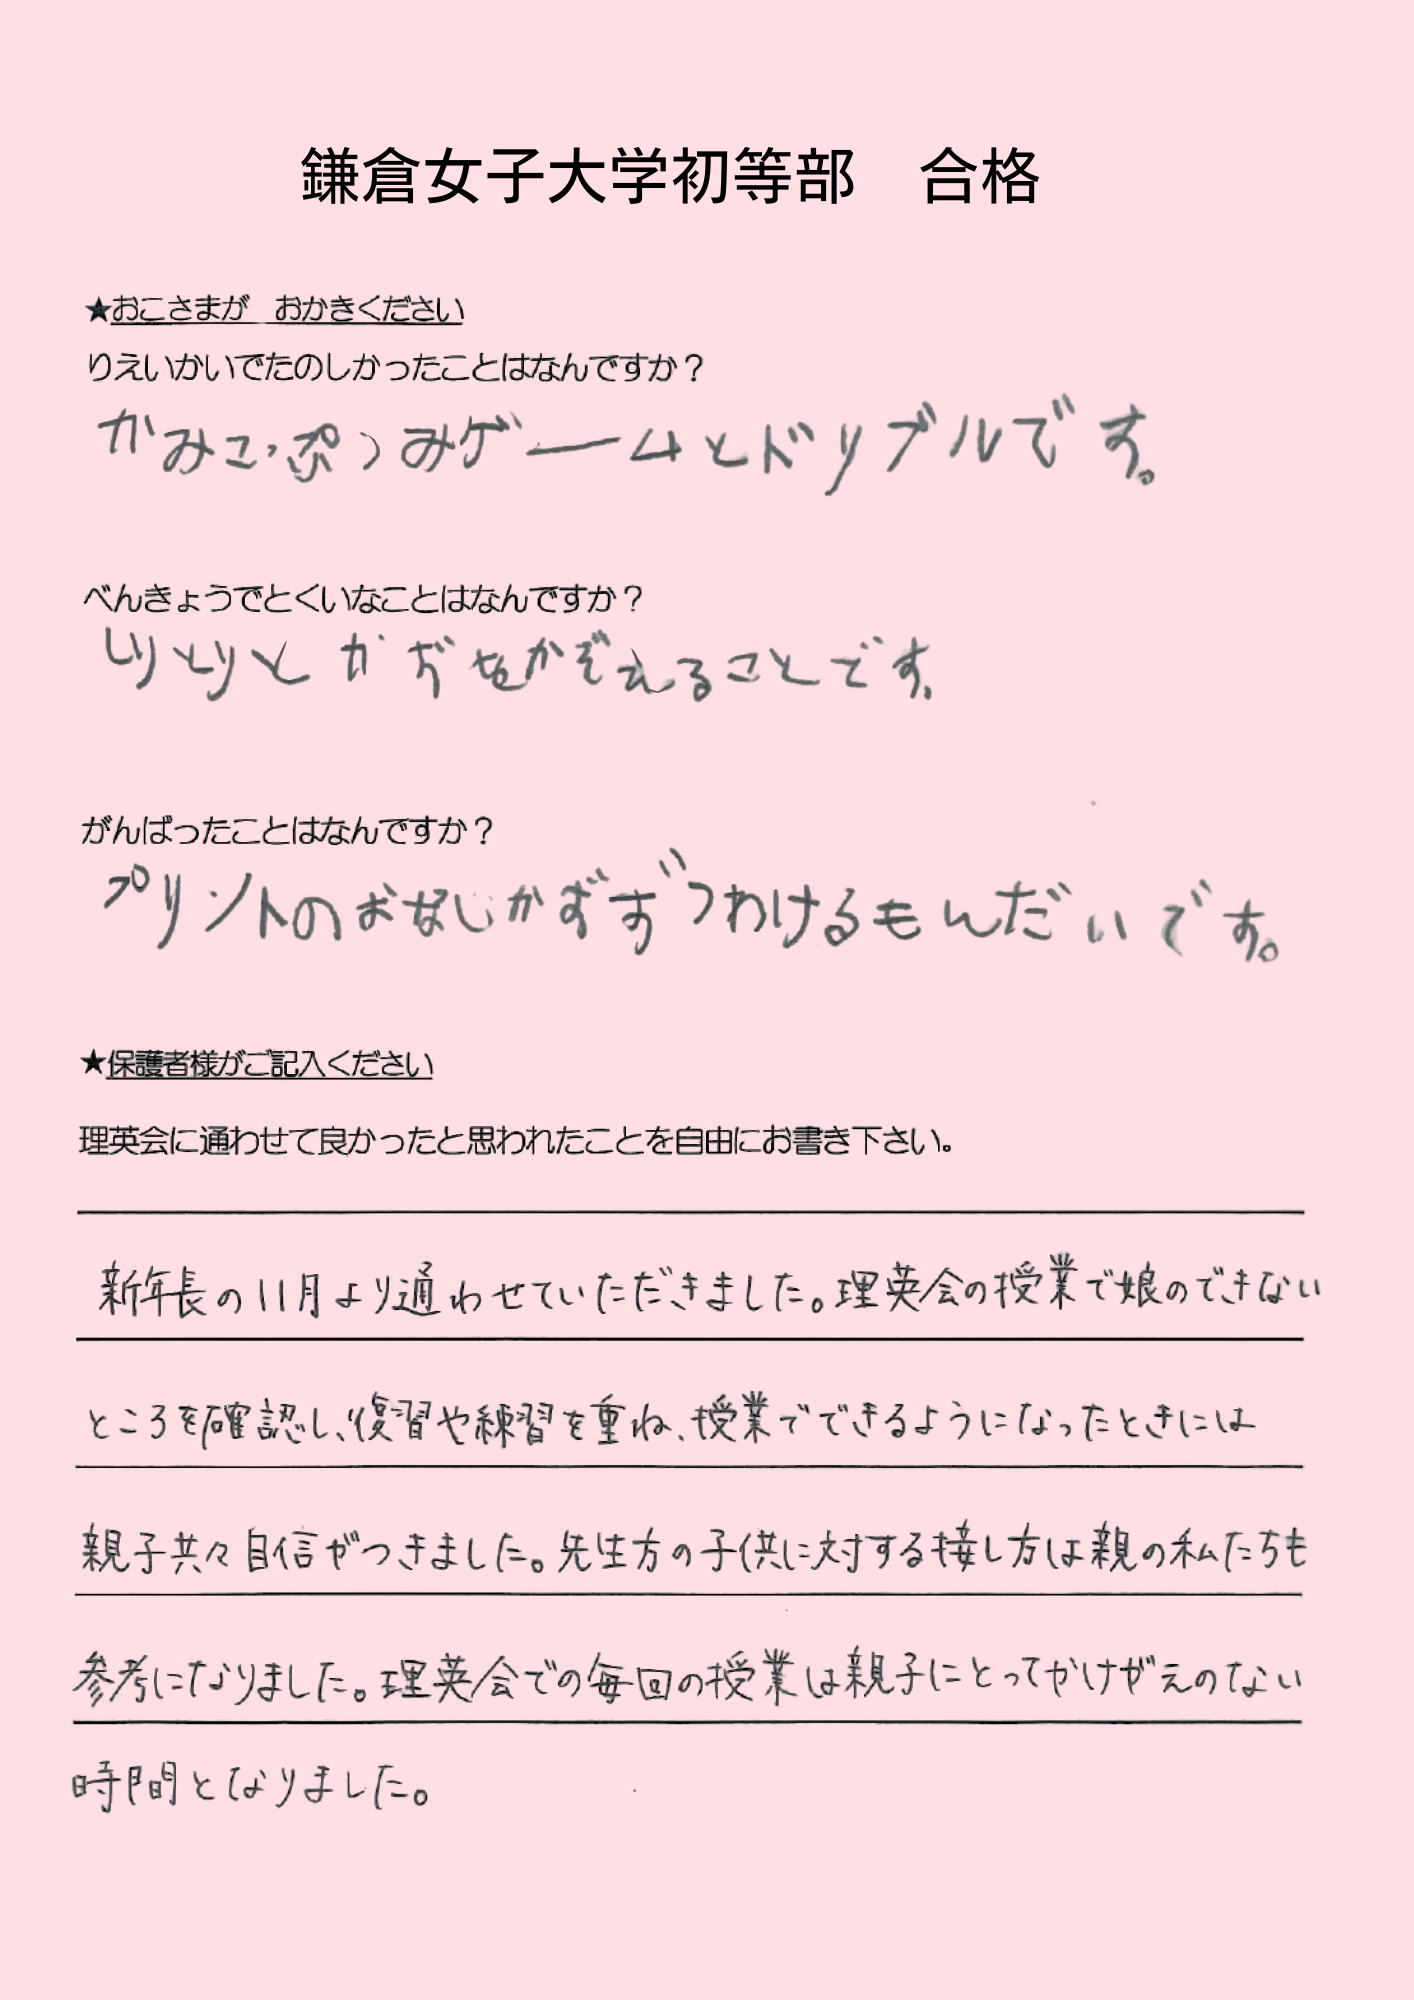 鎌倉女子大学初等部　合格
★おこさまが　おかきください
りえいかいでたのしかったことはなんですか？
かみこっぷつみゲームとドリブルです。
べんきょうでとくいなことはなんですか？
しりとりとかずをかぞえることです。
がんばったことはなんですか？
プリントのおなじかずずつわけるもんだいです。
★保護者様がご記入ください
理英会に通わせて良かったと思われたことを自由にお書き下さい。
新年長の11月より通わせていただきました。理英会の授業で娘のできない
ところを確認し、復習や練習を重ね、授業でできるようになったときには
親子共々自信がつきました。先生方の子供に対する接し方は親の私たちも
参考になりました。理英会での毎回の授業は親子にとってかけがえのない
時間となりました。